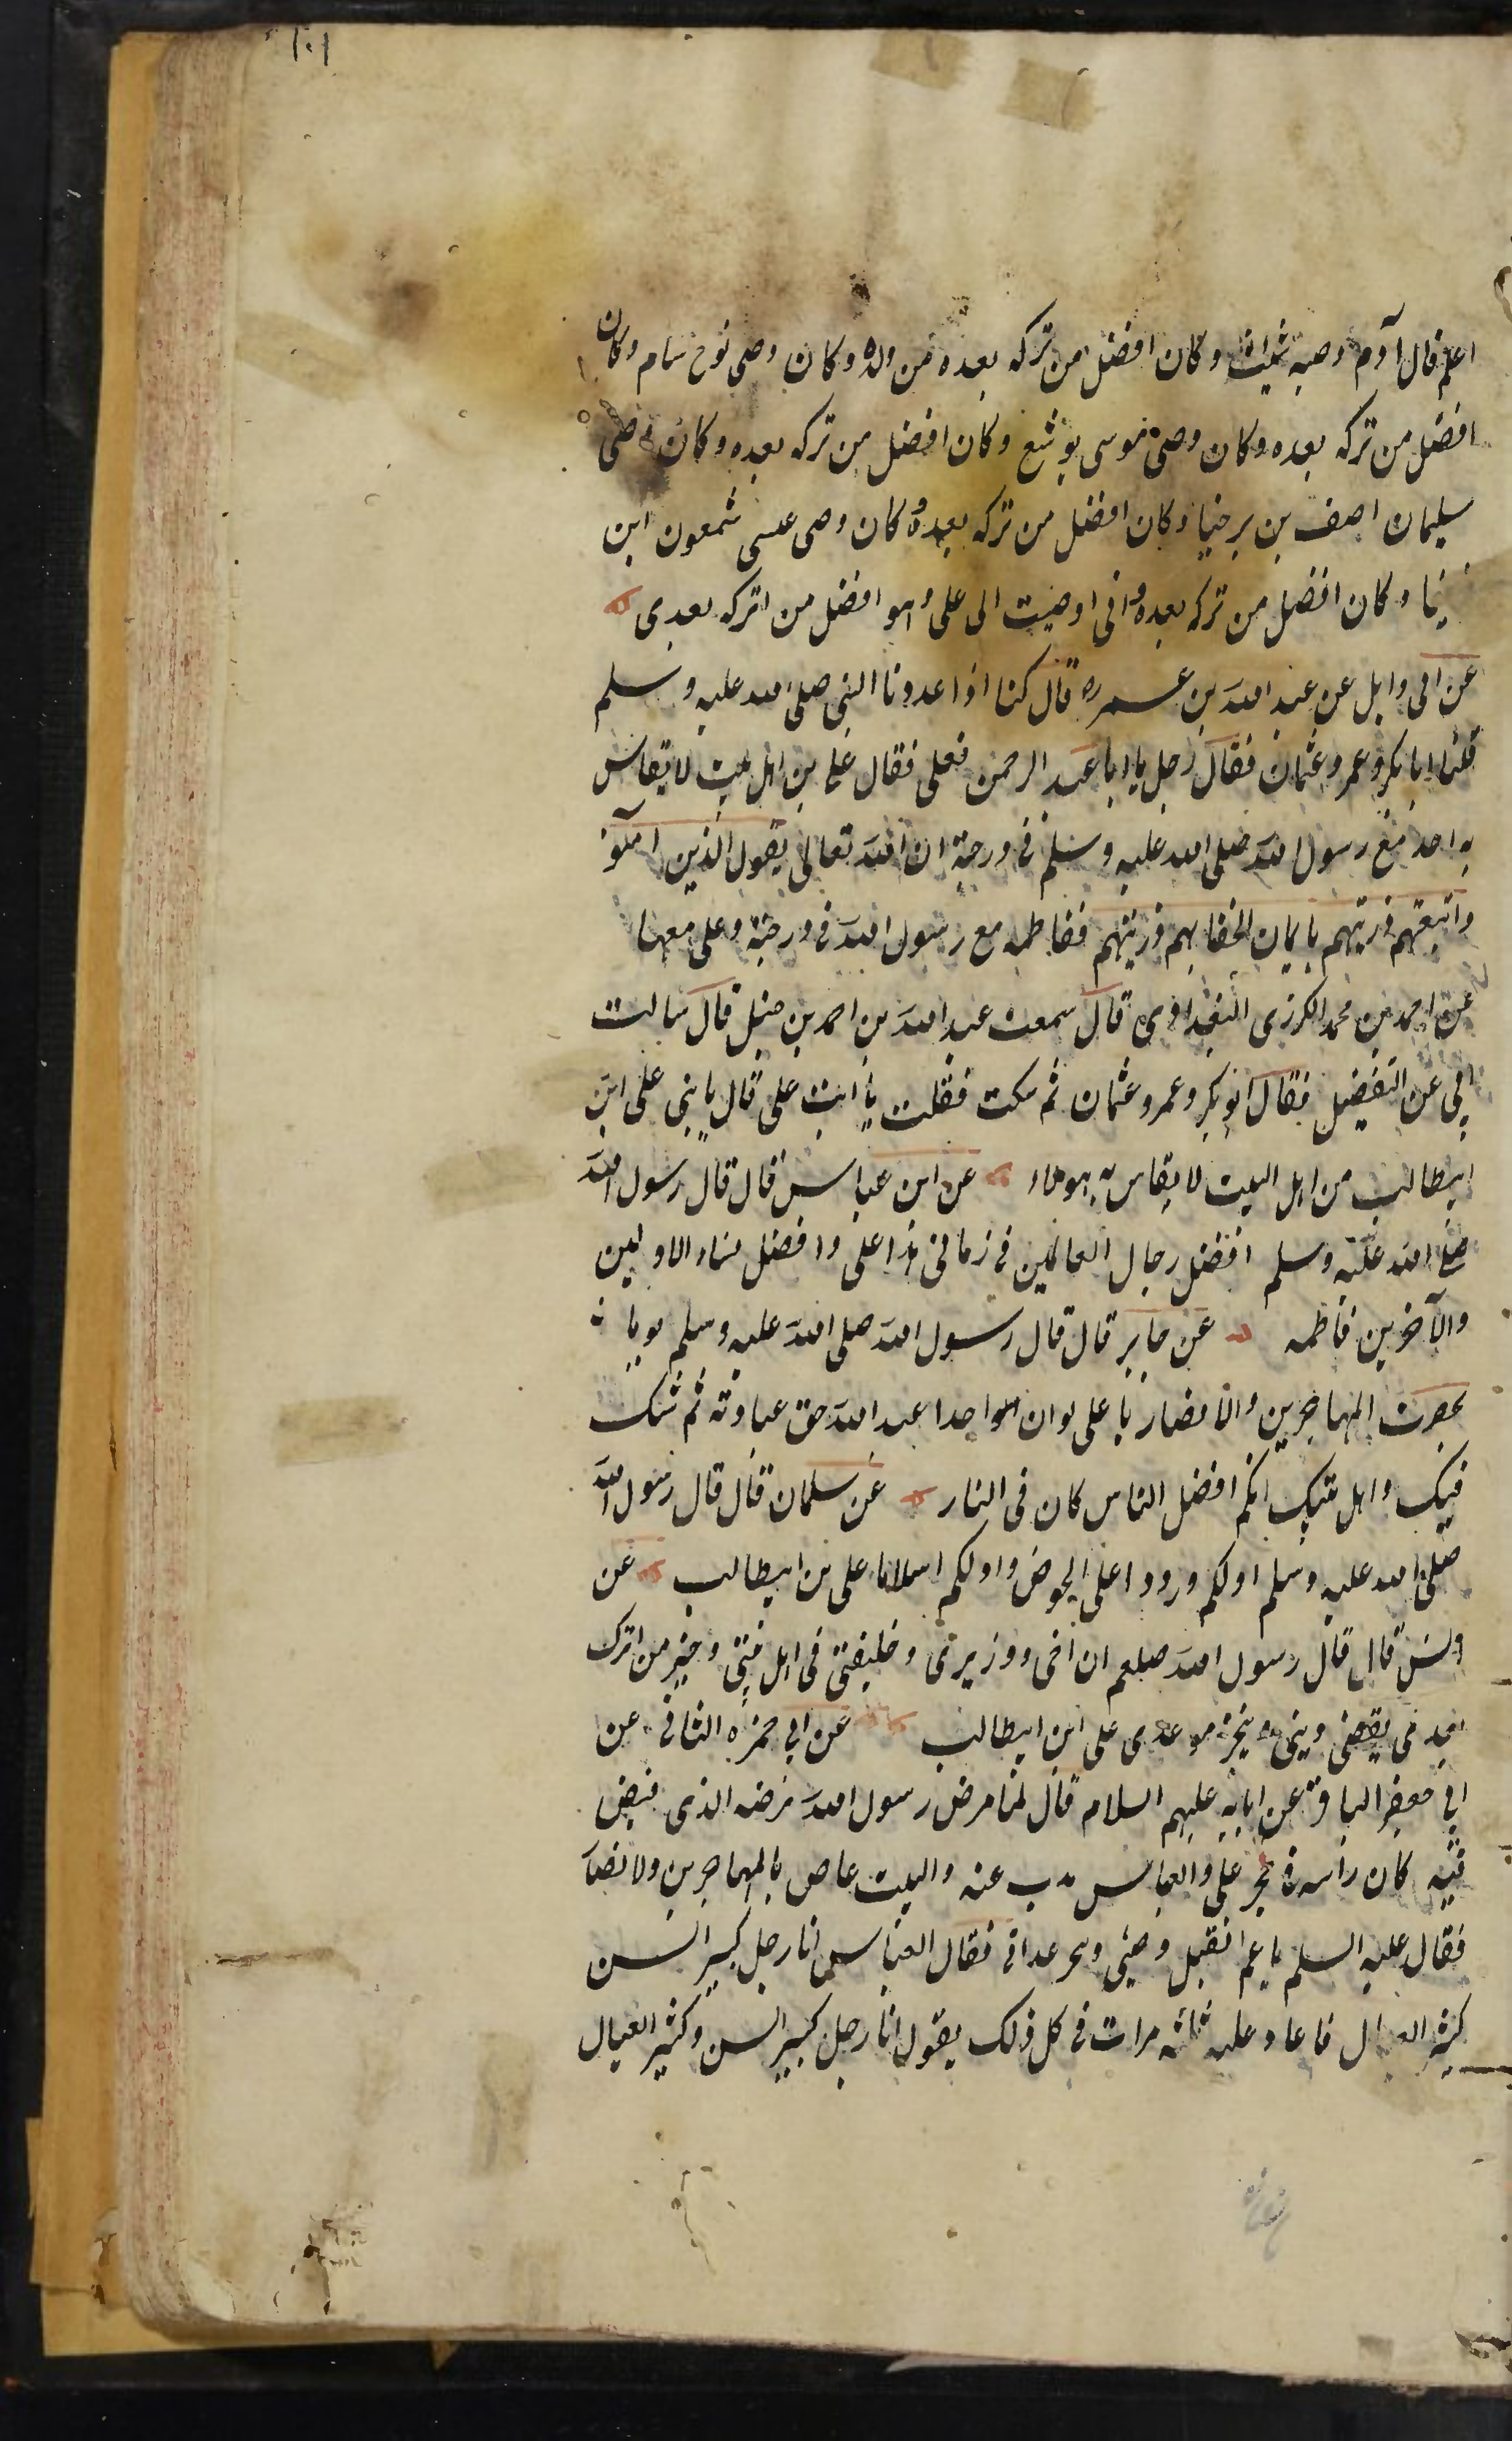 ١٠١
اعلم قال آدم وصیه شیث و کان افضل من ترکه بعده من ولده و کان وصی نوح سام و کان
افضل من ترکه بعده و کان وصی موسی یوشع و کان افضل من ترکه بعده و کان وصی
سلیمان اصف بن برخیا و کان افضل من ترکه بعده و کان وصی عیسی شمعون ابن
و کان افضل من ترکه بعده و انی اوصیت الی علی و هو افضل من اترکه بعدی
عن ابی وایل عن عبد الله بن عمر قال کنا اذا عددنا النبی صلی الله علیه و سلم
قلنا ابا بکر و عمر و عثمان فقال رجل یا ابا عبد الرحمن فعلی فقال علی من اهل بیت لا یقاس
به احد مع رسول الله صلی الله علیه و سلم فی درجة ان الله تعالی یقول الذین آمنوا
و اتبعتهم ذریتهم بایمان الحقنا بهم ذریتهم ففاطمه مع رسول الله فی درجته و علی معها
عن احمد بن محمد الکرزی البغدادی قال سمعت عبد الله بن احمد بن حنبل قال سالت
ابی عن التفضیل فقال ابو بکر و عمر و عثمان ثم سکت فقلت یا ابت علی قال یا بنی علی ابن
ابیطالب من اهل البیت لا یقاس به هولاء عن ابن عباس قال قال رسول الله
صلی الله علیه و سلم افضل رجال العالمین فی زمانی هذا علی و افضل نساء الاولین
و الآخرین فاطمه عن جابر قال قال رسول الله صلی الله علیه و سلم
بحضرت المهاجرین و الانصار یا علی لو ان احدا عبد الله حق عبادته ثم شک
فیک و اهل بیتک انکم افضل الناس کان فی النار عن سلمان قال قال رسول الله
صلی الله علیه و سلم اولکم ورودا علی الحوض و اولکم اسلاما علی بن ابیطالب عن
انس قال قال رسول الله صلعم ان اخی و وزیری و خلیفتی فی اهل بیتی و خیر من اترک
بعدی یقضی دینی و ینجز موعدی علی ابن ابیطالب عن ابی حمزه الثمالی عن
ابی جعفر الباقر عن ابایه علیهم السلام قال لما مرض رسول الله مرضه الذی قبض
فیه کان راسه فی حجر علی و العباس یذب عنه و البیت غاص بالمهاجرین و الانصار
فقال علیه السلم یا عم اتقبل وصیتی و تنجز عداتی فقال العباس انا رجل کبیر السن
کثیر العیال فاعاد علیه ثلثه مرات فی کل ذلک یقول انا رجل کبیر السن و کثیر العیال